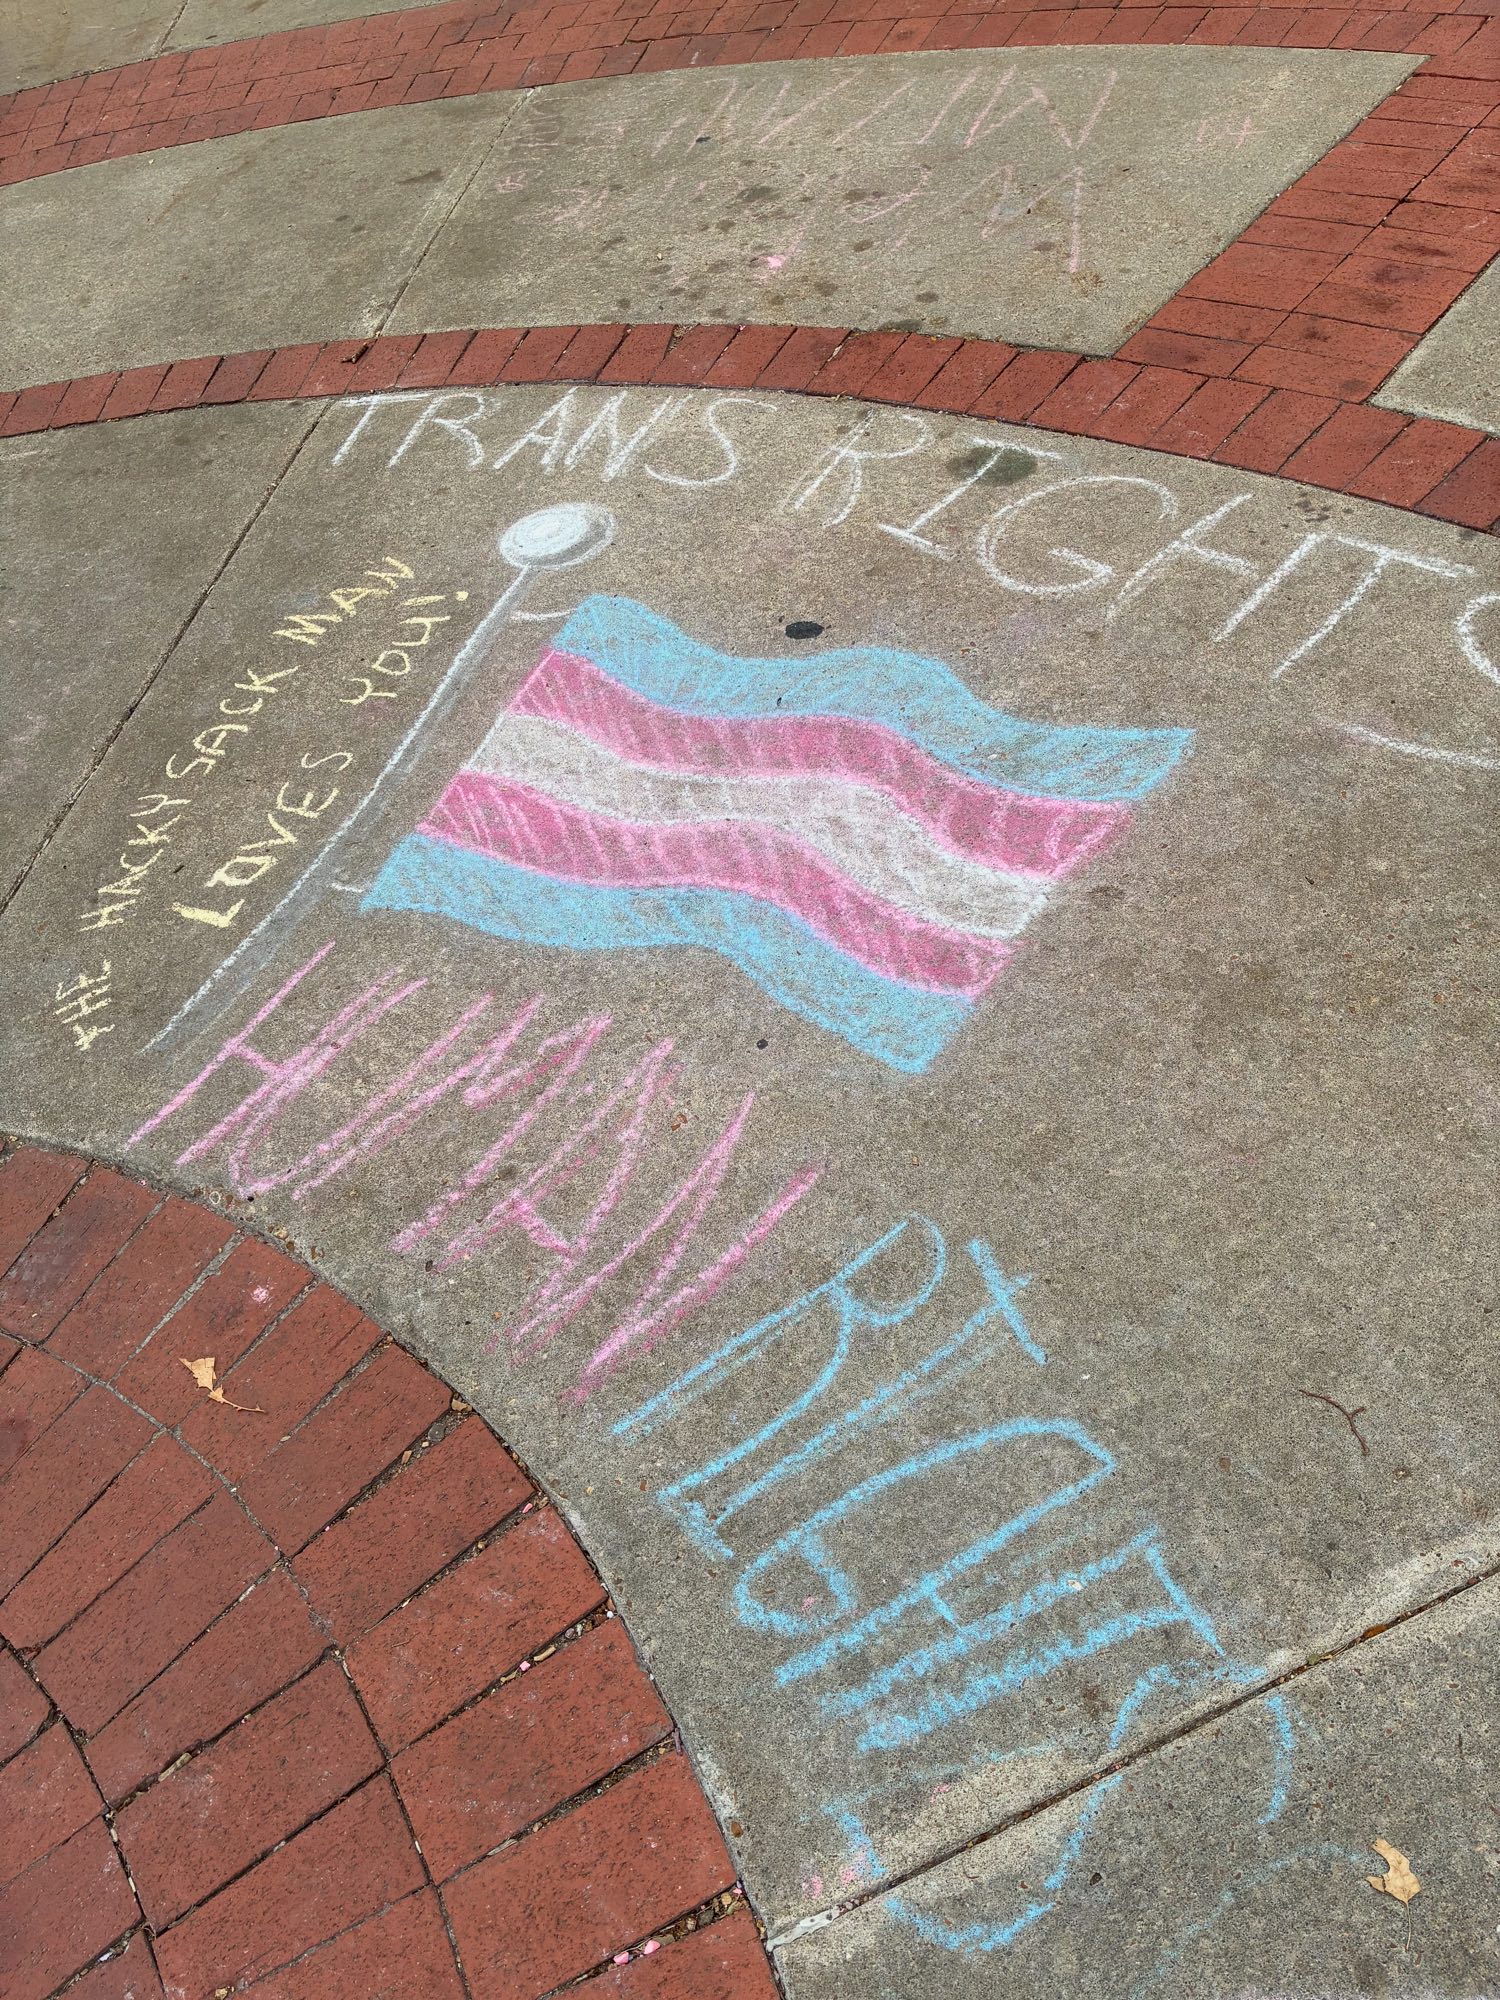 TRANS RIGHTS
THE HACKY SACK MAN
LOVES YOU!
HUMAN RIGHTS